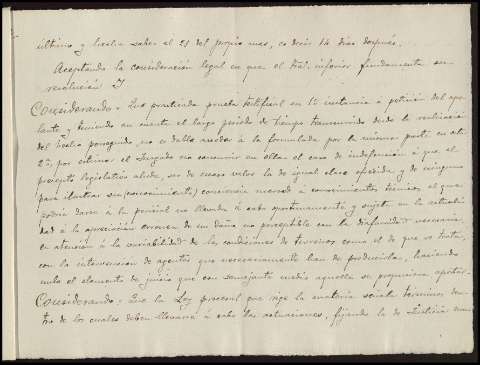 último y hecho saber el 29 del propio mes, es decir 14 dias después.
Aceptando la consideración legal en que el inferior fundamenta su
resolución Y
Considerando: Que practicada prueba testifical en 1ª instancia á petición del ape-
lante y teniendo en cuenta el largo periodo de tiempo transcurrido desde la realización
del hecho perseguido, no es dable acceder á la formulada por la misma parte en esta
2ª, por estimar el Juzgado no concurrir en ella el caso de indefensión á que el
precepto legislativo alude, ser de escaso valor la de igual clase ofrecida y de ninguno
para ilustrar su (conocimiento) conciencia merced á conocimientos técnicos, el que
podria darse á la pericial no llevada á cabo oportunamente y sujeta en la actuali-
dad á la apreciación erronea de un daño no perceptible con la necesaria
en atención á la variabilidad de las condiciones de terrenos como el de que se trata,
con la intervención de agentes que necesariamente han de producirla, haciendo
nulo el elemento de juicio que con semejante medio aquella se propusiera aportar.
Considerando: Que la Ley procesal que rige la materia señala terminos den-
tro de los cuales deben llevarse á cabo las actuaciones, fijando la de Justicia